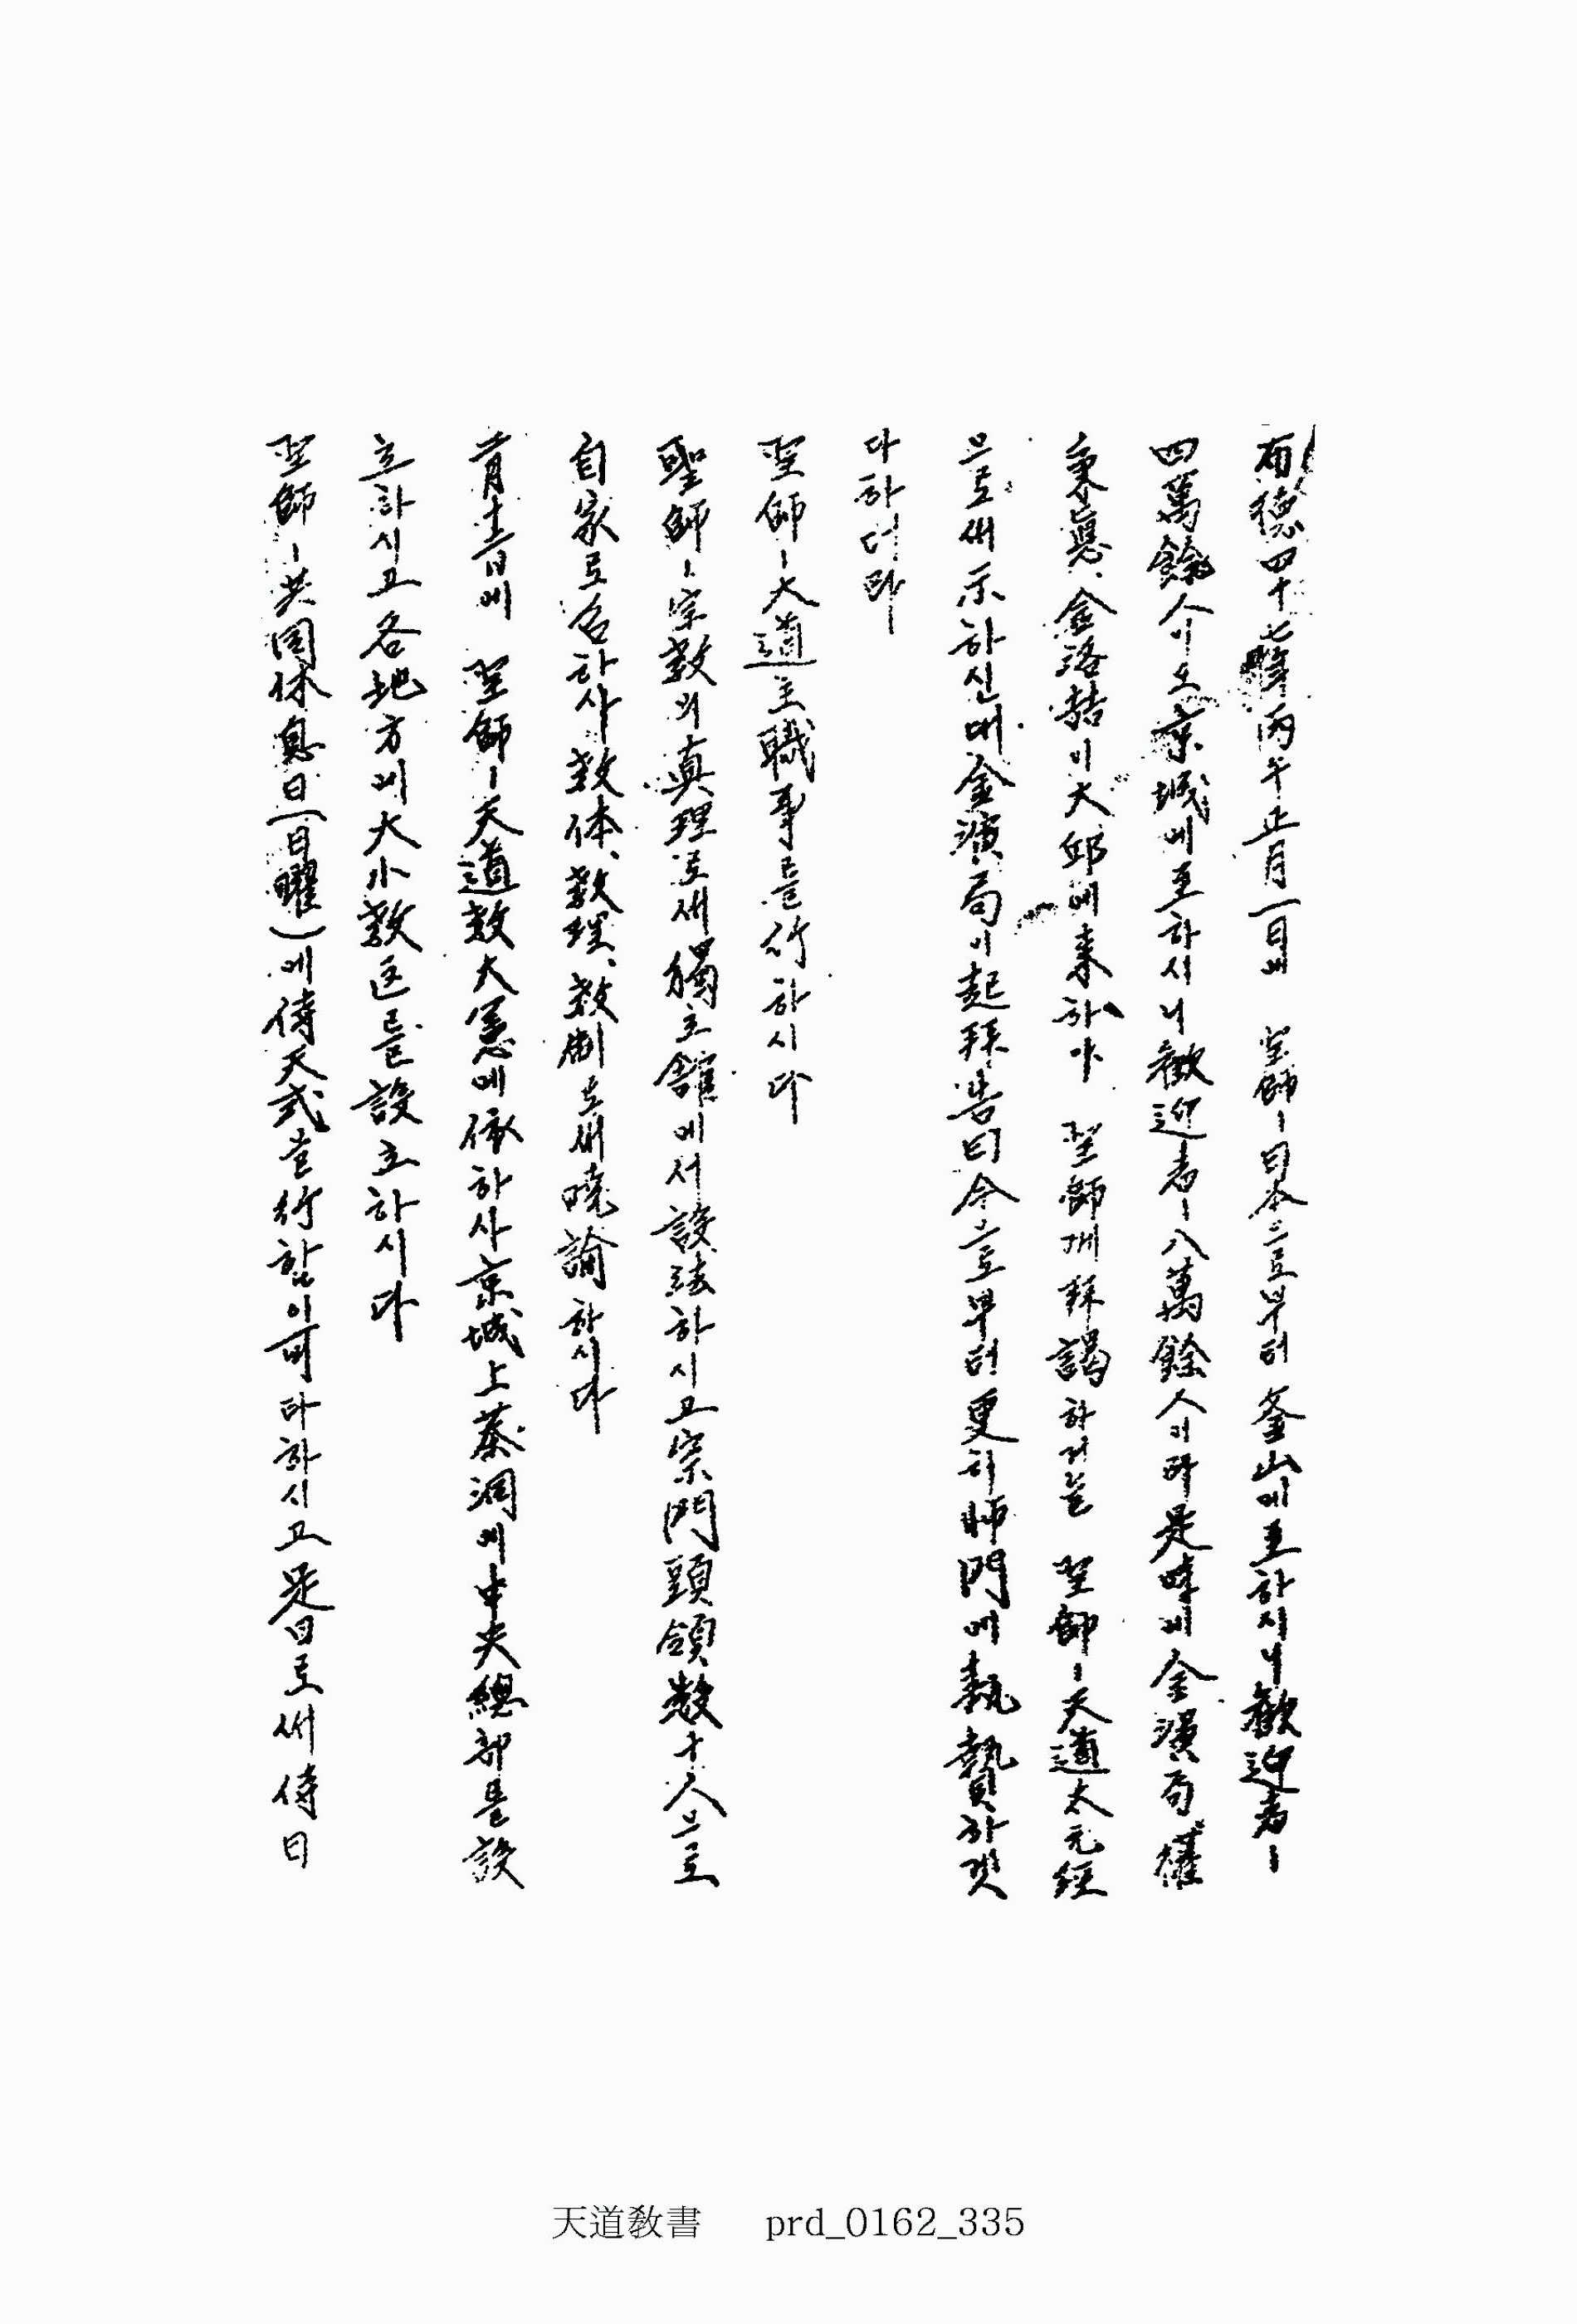 布德四十七年丙午正月一日에 聖師ㅣ日本으로부터 釜山에至하시니歡迎者ㅣ
四萬餘人이오京城에至하시니歡迎者ㅣ八萬餘人이라是時에金演局、權
秉悳、金洛喆이大邱에來하야 聖師께拜謁하거늘 聖師ㅣ天道太元經
으로새示하신대金演局이起拜告曰今으로부터更히師門에執贄하겟
다하더라
聖師ㅣ大道主職事를行하시다
聖師ㅣ宗敎의眞理로새獨立舘에서說法하시고宗門頭領數十人으로
自家로召하사敎体、敎理、敎制로새曉諭하시다
二月十六日에 聖師ㅣ天道敎大憲에依하사京城上茶洞에中央總部를設
立하시고各地方에大小敎区를設立하시다
聖師ㅣ共同休息日(日曜)에侍天式을行함이可타하시고是日로새侍日
天道敎書 prd_0162_335